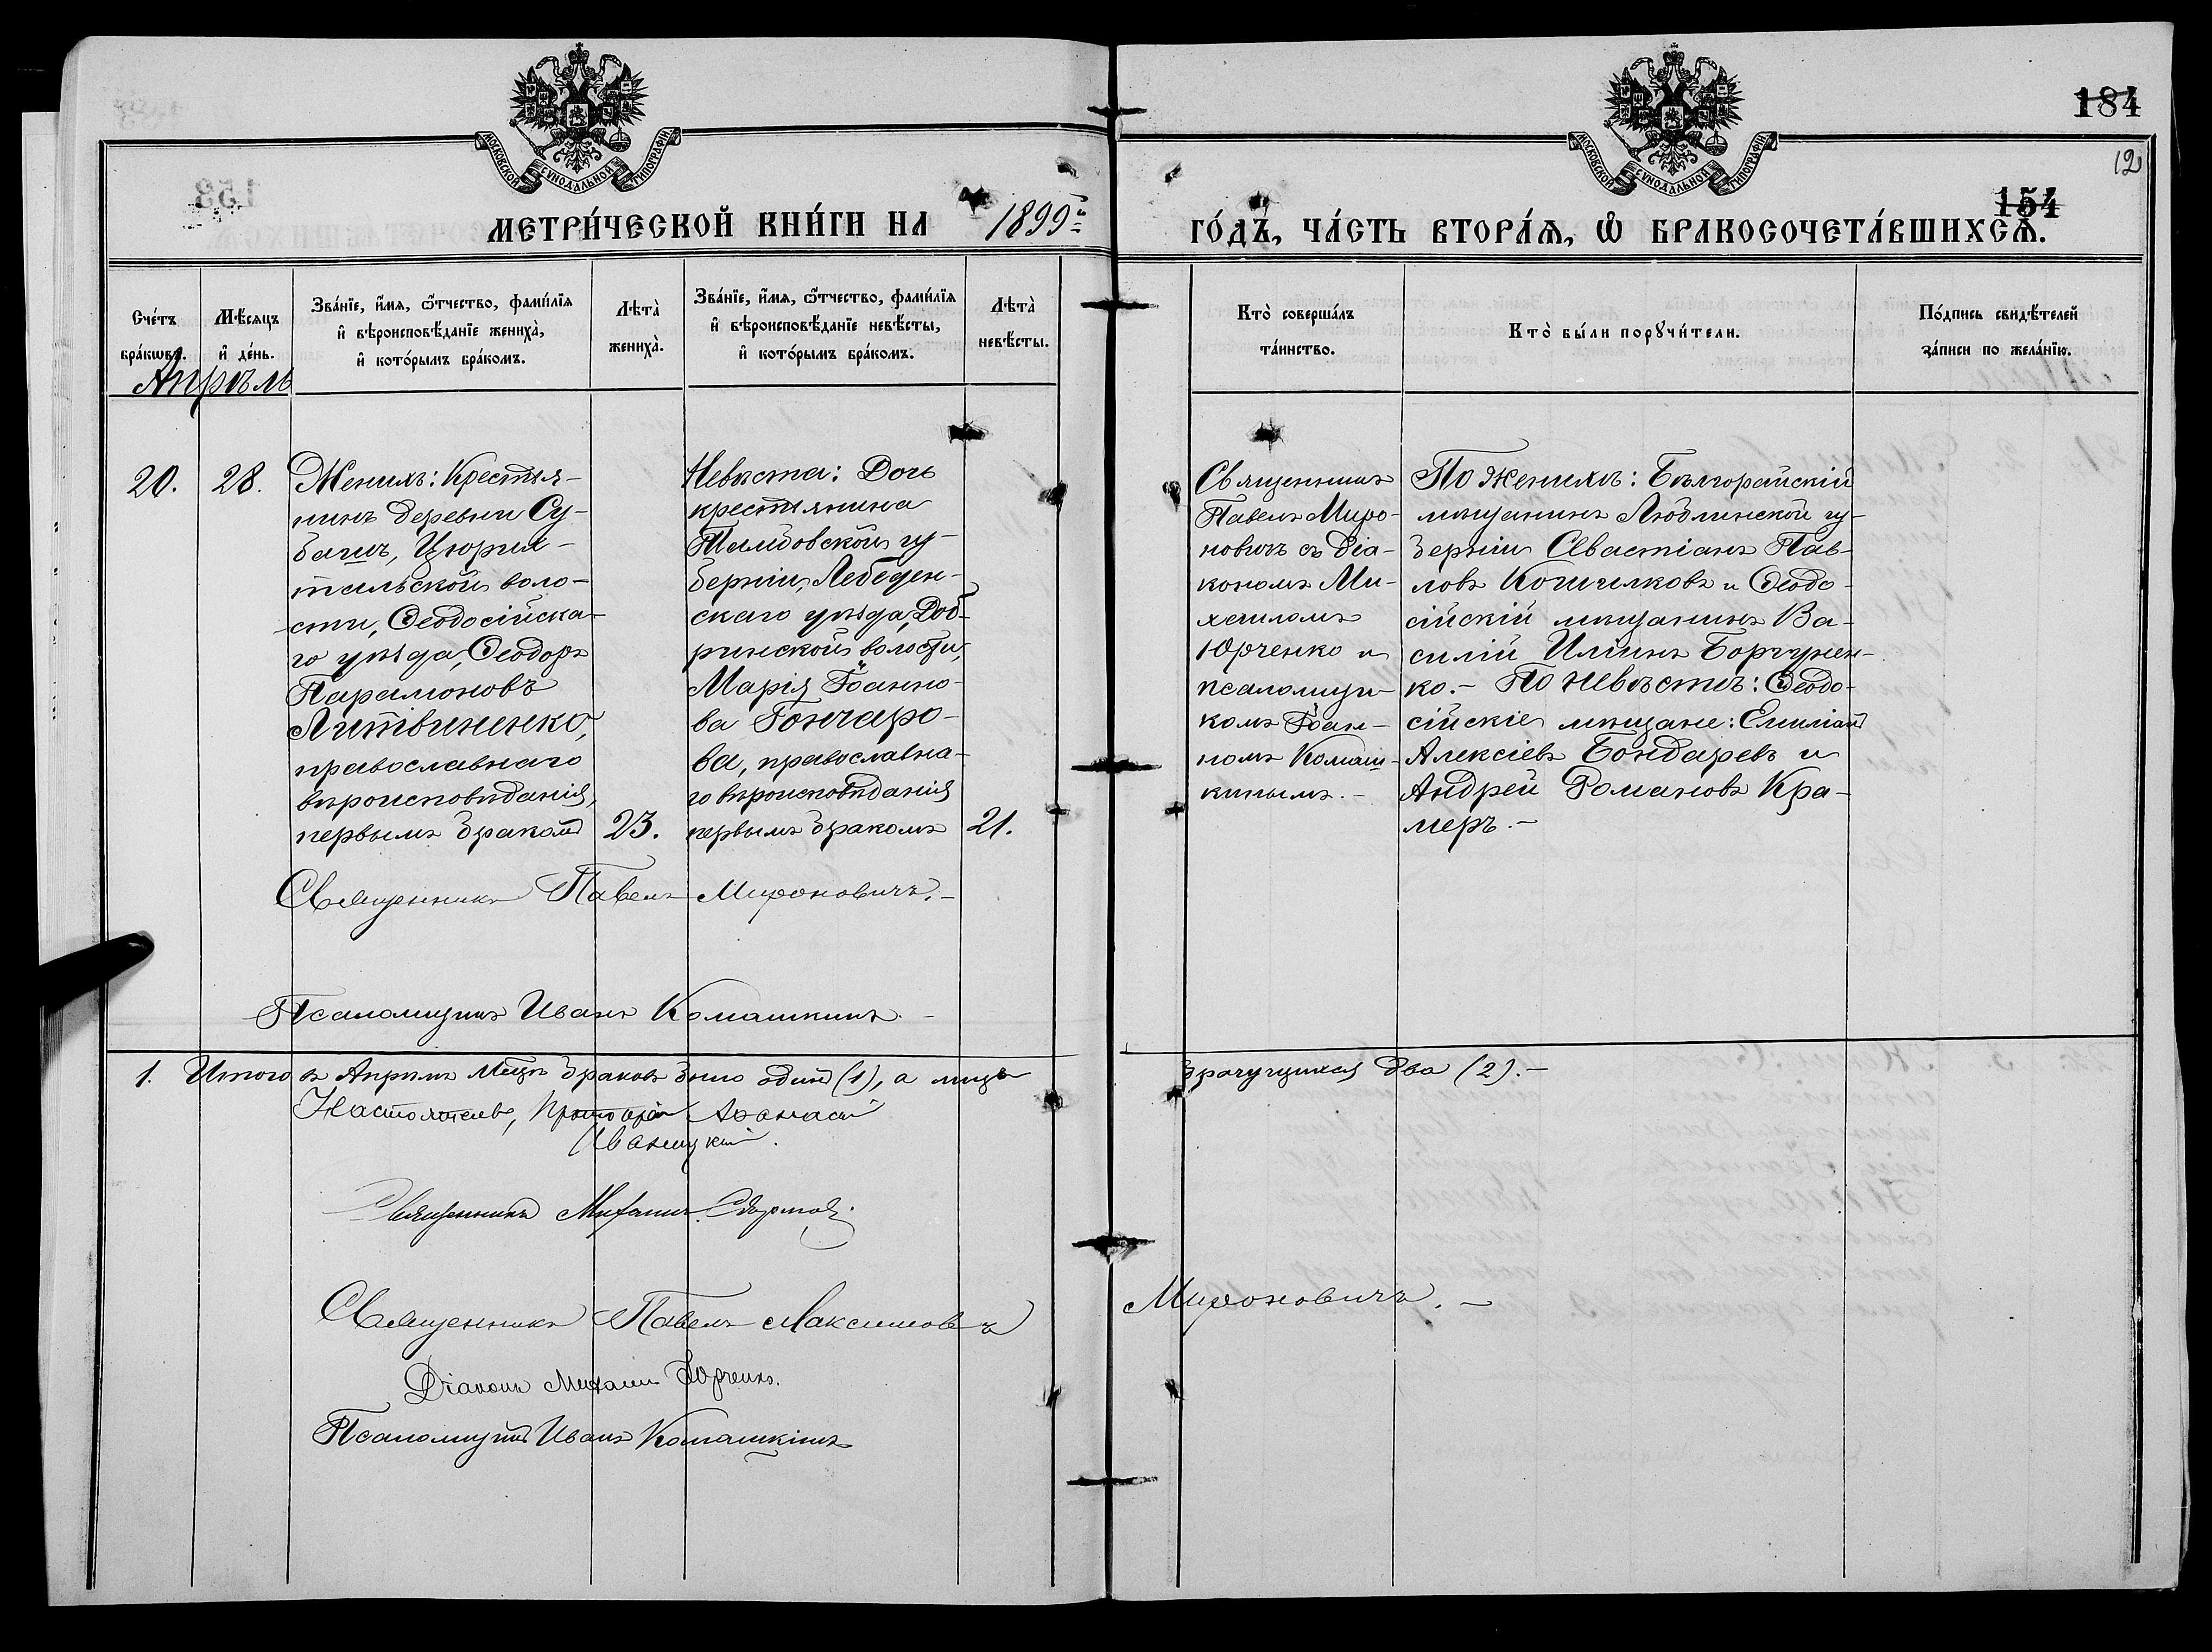 МОСКОВСКОЙ СѴНОДАЛЬНОЙ ТИПОГРАФІИ.
МОСКОВСКОЙ СѴНОДАЛЬНОЙ ТИПОГРАФІИ.
184
12
154
МЕТРИ́ЧЕСКОЙ КНИ́ГИ НА 1899й
ГО́ДЪ, ЧА́СТЬ ВТОРА́Ѧ, Ѡ҆ БРАКОСОЧЕТА́ВШИХСѦ.
Сче́тъ
бра́кѡвъ.
Мѣ́сяцъ
и҆ де́нь.
Зва́нїе, и҆́мя, ѻ҆́тчество, фами́лїя
и҆ вѣроисповѣ́данїе жениха̀,
и҆ кото́рымъ бра́комъ.
Лѣта̀
жениха̀.
Зва́нїе, и҆́мя, ѻ҆́тчество, фами́лїя
и҆ вѣроисповѣ́данїе невѣ́сты,
и҆ кото́рымъ бра́комъ.
Лѣта̀
невѣ́сты.
Кто̀ соверша́лъ
та́инство.
Кто̀ бы́ли порꙋчи́тели.
По́дпись свидѣ́телей
за́писи по жела́нїю.
Апрѣль
20.
28.
Женихъ: Крестья-
нинъ деревни Су-
багиъ, Цюрих-
тальской воло-
сти, Ѳеодосійска-
го уѣзда, Ѳеодоръ
Парамоновъ
Литвиненко,
православнаго
вѣроисповѣданія,
первымъ бракомъ
23.
Невѣста: Дочь
крестьянина
Тамбовской гу-
берніи, Лебедян-
скаго уѣзда, Доб-
ринской волости,
Марія Іоанно-
ва Гончаро-
ва, православна-
го вѣроисповѣданія
первымъ бракомъ
21.
Священникъ
Павелъ Миро-
новичъ съ діа-
кономъ Ми-
хаиломъ
Юрченко и
псаломщи-
комъ Іоан-
номъ Комаш-
кинымъ.-
По женихѣ: Бѣлгорайскій
мѣщанинъ Люблинской гу-
берніи Севастіанъ Пав-
ловъ Кошилковъ и Ѳеодо-
сійскій мѣщанинъ Ва-
силій Илiинъ Боргунен-
ко.- По невѣстѣ: Ѳеодо-
сійскіе мѣщане: Емиліанъ
Алексіевъ Бондаревъ и
Андрей Романовъ Кра-
меръ.-
Священникъ Павелъ Мироновичъ.-
Псаломщикъ Иванъ Комашкинъ.-
1. Итого въ Апрѣлѣ Мѣцѣ браковъ было одинъ (1), а лицъ
брачущихся два (2).-
Настоятель, Протоіерей Аѳанасій
Иваницкій.
Священникъ Михаилъ
Священникъ Павелъ Максимовъ
Мироновичъ.-
Діаконъ Михаилъ Юрченко.
Псаломщикъ Иванъ Комашкинъ